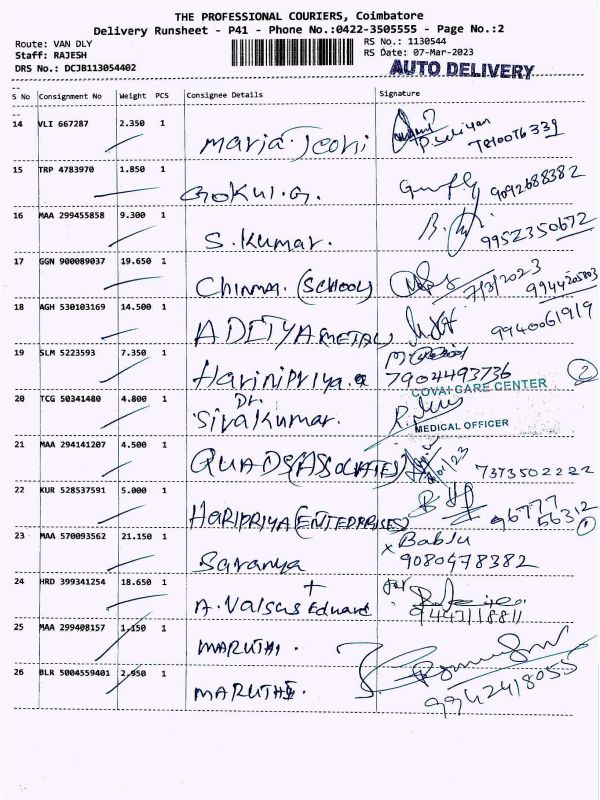 THE PROFESSIONAL COURIERS, Coimbatore
Delivery Runsheet - P41 - Phone No.:0422-3505555 - Page No.:2
Route: VAN DLY
Staff: RAJESH
DRS No.: DCJB113054402
RS No.: 1130544
RS Date: 07-Mar-2023
AUTO DELIVERY
S No Consignment No Weight PCS Consignee Details Signature
14 VLI 667287 2.350 1 Maria Jeoni 7810076339
15 TRP 4783970 1.850 1 GOKUL.G. 9092688382
16 MAA 299455858 9.300 1 S. Kumar. 9952350672
17 GGN 900089037 19.650 1 Chinma. (SCHOOL) 7/3/2023 9944205803
18 AGH 530103169 14.500 1 ADITYA METAL 9940061919
19 SLM 5223593 7.350 1 Haripriya. 7904493736 2
COVAI CARE CENTER
20 TCG 50341480 4.800 1 Dr. Sivakumar.
MEDICAL OFFICER
21 MAA 294141207 4.500 1 QUADS (ASSOCIATES) 7373502222
22 KUR 528537591 5.000 1 HARIPRIYA (ENTERPRISES) 96777 56312 1
23 MAA 570093562 21.150 1 Saranya x Bablu 9080478382
24 HRD 399341254 18.650 1 A. Valsus Eduard for 9443118811
25 MAA 299408157 1.150 1 MARUTHI.
26 BLR 5004559401 2.950 1 MARUTHI. 9942418055